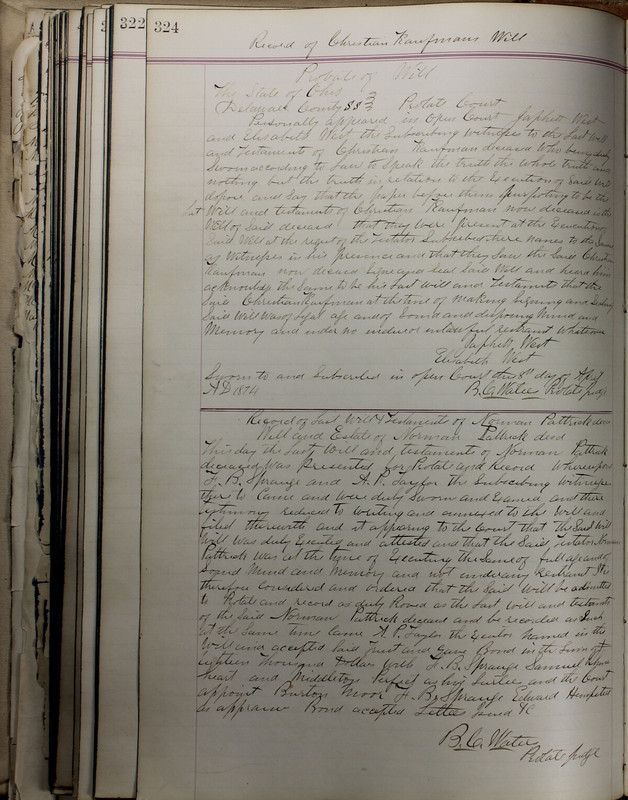 322
324
Record of Christian Kaufmans Will
Probate of Will
The State of Ohio
Delaware County SS Probate Court
Personally appeared in Open Court Japhett West
and Elisabeth West the Subscribing Witnesses to the Last Will
and Testament of Christian Kaufman deceased who being duly
Sworn according to Law to Speak the truth the whole truth and
nothing but the truth in relation to the Execution of Said Will
depose and Say that the paper before them purpoting to be the
Last Will and testament of Christian Kaufman now deceased is the
Will of Said deceased that they were present at the Execution of
Said Will at the request of the Testator Subscribed there names to the Same
as Witnesses in his presence and that they Saw the Said Christian
Kaufman now deceased Signe and Seal Said Will and heard him
acknowledge the Same to be his Last Will and Testament that the
Said Christian Kaufman at the time of making Signing and Sealing
Said Will was of Legal age and of Sound and disposing Mind and
Memory and under no undue or unlawful restraint whatsoever
Japhett West
Elisabeth West
Sworn to and Subscribed in open Court this 8th day of April
AD 1874 B.C. Waters Probate Judge
Record of Last Will & Testament of Norman Pattrick decd
Will and Estate of Norman Pattrick decd
This day the Last Will and testament of Norman Pattrick
deceased was presented for Probat and Record Whereupon
F. B. Sprauge and A. P. Taylor the Subscribing Witnesses
there to Came and were duly Sworn and Examed and there
testimony reduced to Writing and annexed to the Will and
filed therewith and it appearing to the Court that the Said Will
Will was duly Executed and attested and that the Said Testator Norman
Pattrick was at the time of Executing the Same of full age and of
Sound Mind and Memory and not under any Restraint It is
therefore Considered and ordered that the Said Will be admitted
to Probate and record as duly Proved as the Last Will and testament
of the Said Norman Pattrick deceased and be recorded as Such
at the Same time Came A. P. Taylor the Executor named in the
Will and accepted Said Trust and Gave Bond in the Sum of
Eighteen Thousand Dollars With F. B. Sprauge Samuel
heart and Middleton Perfect as his Surties and the Court
appoint Burton Moor F. B. Sprauge Edward Hempsted
as appraisers Bond accepted Letters Issued &C
B. C. Waters
Probate Judge